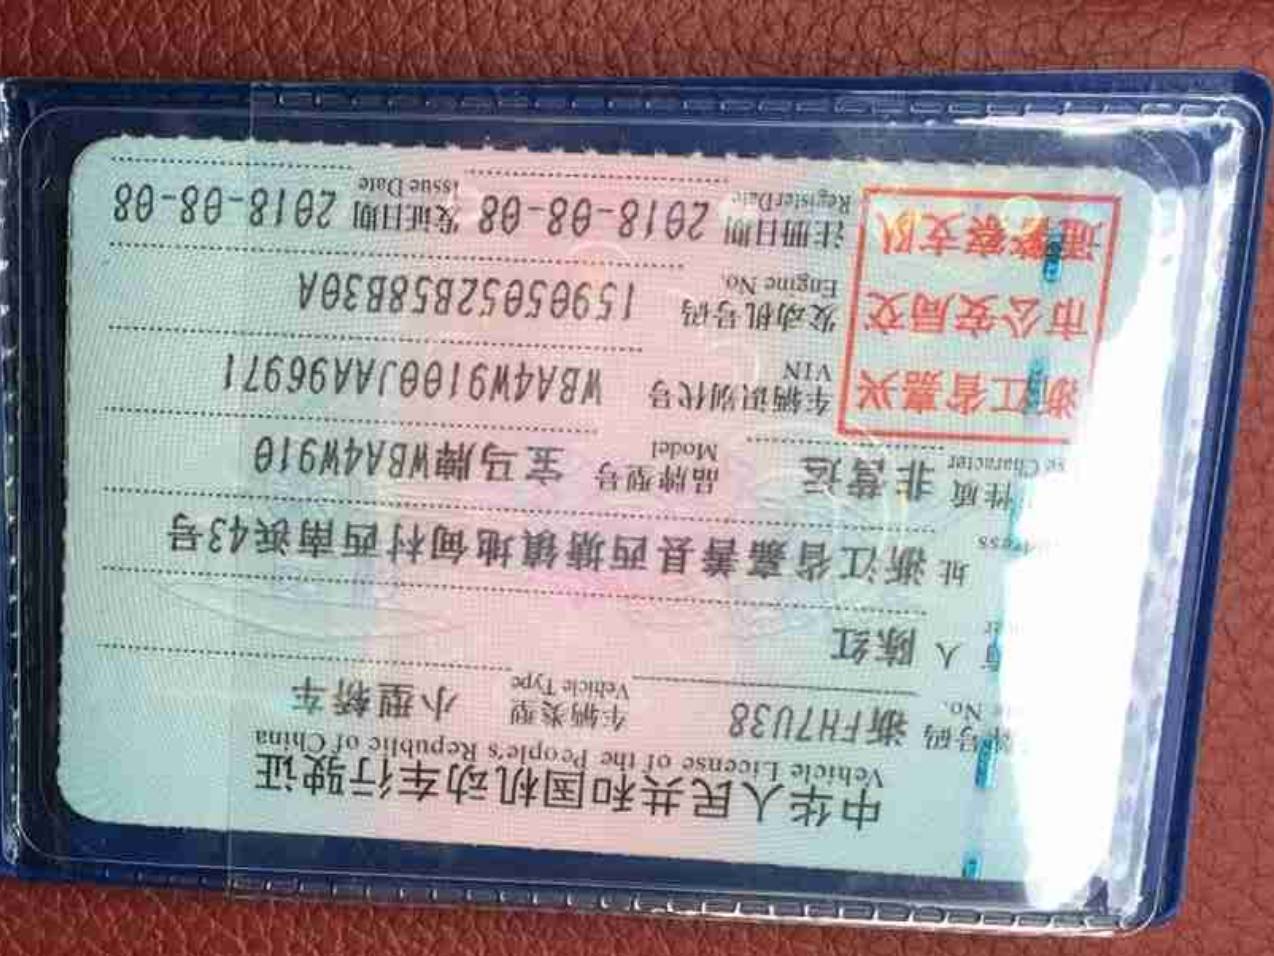 中华人民共和国机动车行驶证
Vehicle License of the People's Republic of China
号码 浙FH7U38 车辆类型 小型轿车
No. Vehicle Type
人 陈红
址 浙江省嘉善县西塘镇地甸村西南浜43号
性质 非营运 品牌型号 宝马牌WBA4W910
Character Model
浙江省嘉兴
市公安局交
通警察支队
车辆识别代号 WBA4W9100JAA96971
VIN
发动机号码 15905052B58B30A
Engine No.
注册日期 2018-08-08 发证日期 2018-08-08
RegisterDate Issue Date